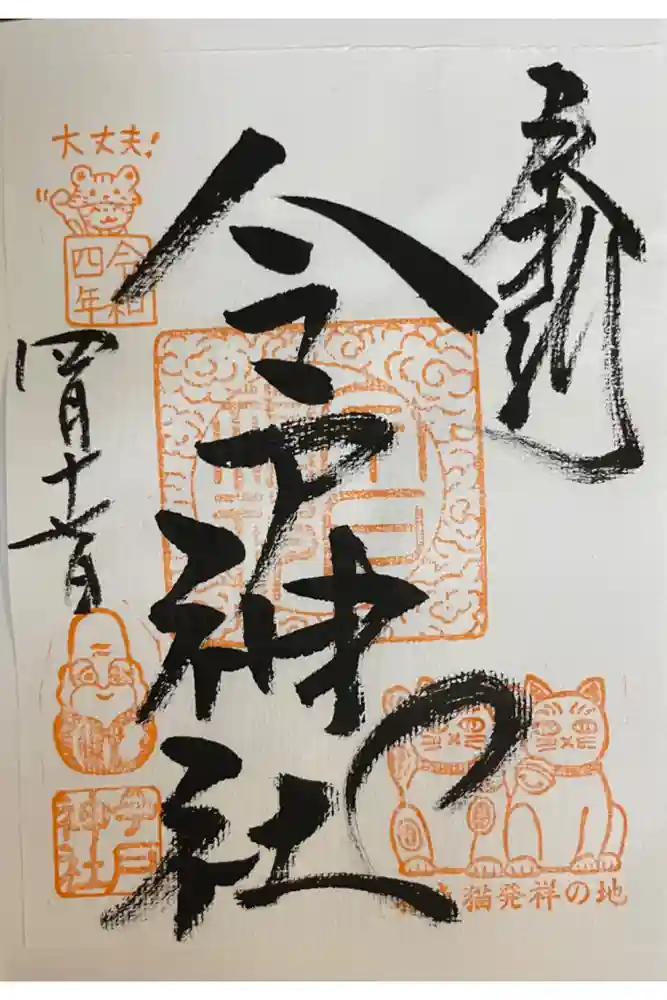 奉拝
今戸神社
大丈夫!
令和四年
四月十七日
今戸神社
猫発祥の地